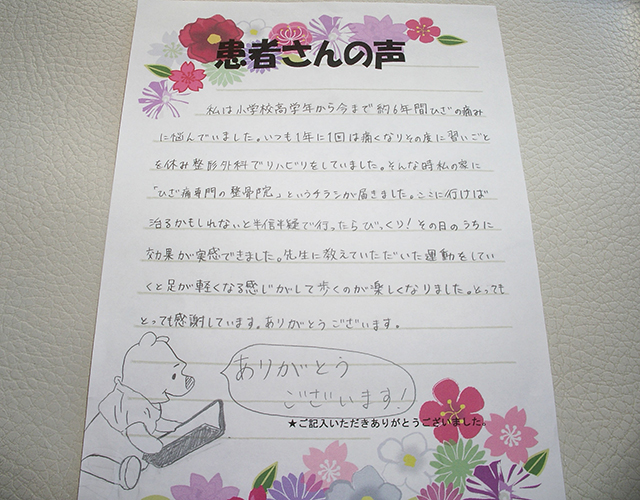 患者さんの声
私は小学校高学年から今まで約6年間ひざの痛み
に悩んでいました。いつも1年に1回は痛くなりその度に習いごと
を休み整形外科でリハビリをしていました。そんな時私の家に
「ひざ痛専門の整骨院」というチラシが届きました。ここに行けば
治るかもしれないと半信半疑で行ったらびっくり!その日のうちに
効果が実感できました。先生に教えていただいた運動をしてい
くと足が軽くなる感じがして歩くのが楽しくなりました。とっても
とっても感謝しています。ありがとうございます。
ありがとう
ございます!
★ご記入いただきありがとうございました。